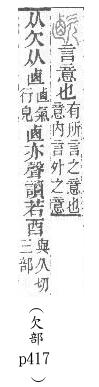 言意也有所言之意也意內言外之意
从欠从鹵鹵氣行皃鹵亦聲讀若酉與久切三部
(欠部
p417)